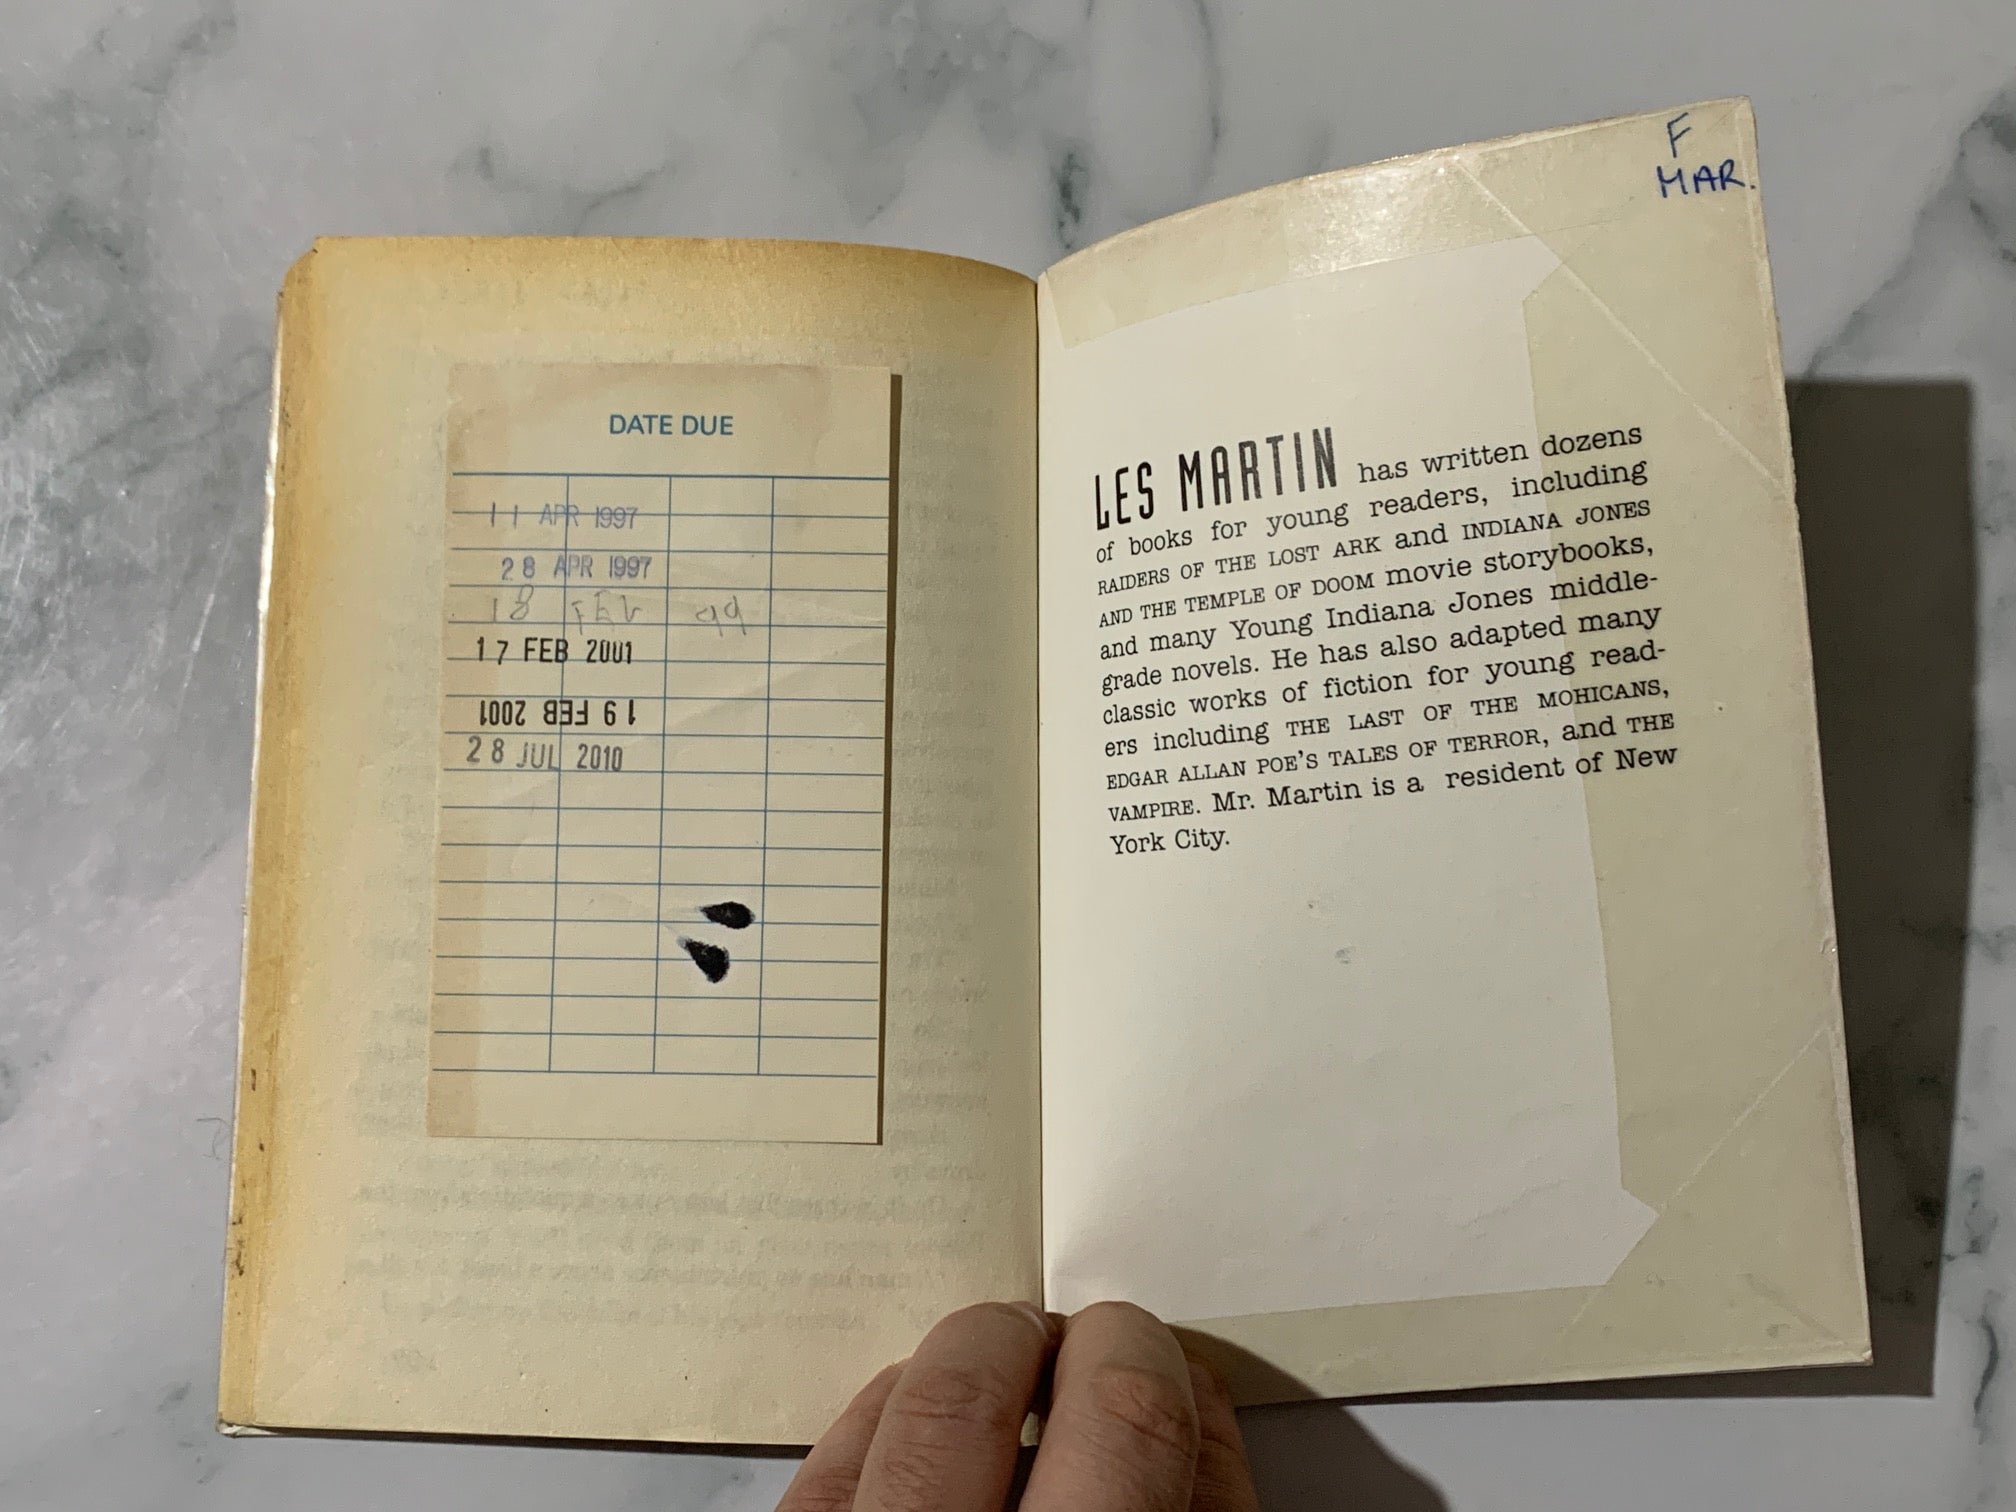 DATE DUE
11 APR 1997
28 APR 1997
18 FEB 99
17 FEB 2001
19 FEB 2001
28 JUL 2010
F
MAR.
LES MARTIN has written dozens
of books for young readers, including
RAIDERS OF THE LOST ARK and INDIANA JONES
AND THE TEMPLE OF DOOM movie storybooks,
and many Young Indiana Jones middle-
grade novels. He has also adapted many
classic works of fiction for young read-
ers including THE LAST OF THE MOHICANS,
EDGAR ALLAN POE'S TALES OF TERROR, and THE
VAMPIRE. Mr. Martin is a resident of New
York City.